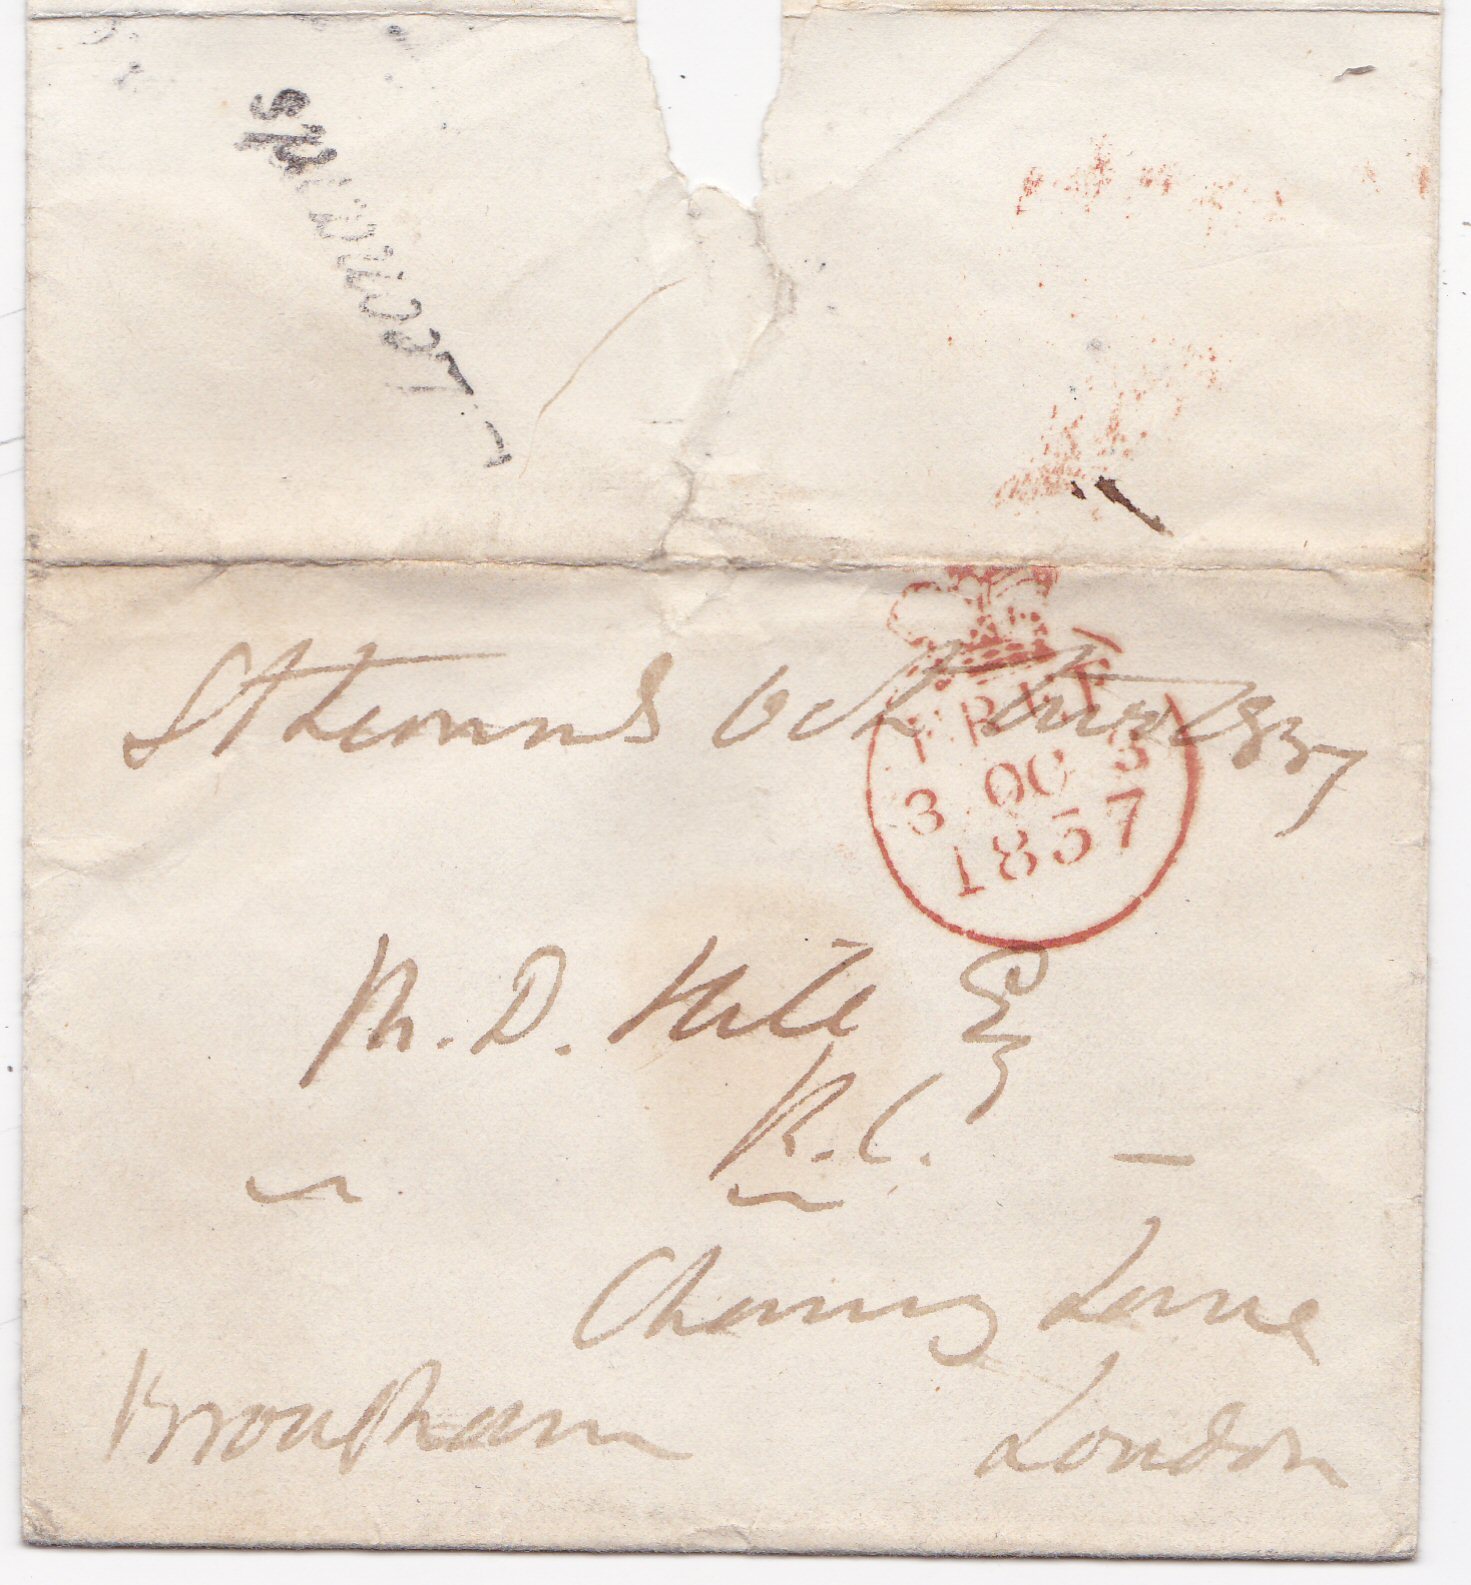 Leonards
St Leonards Oct two 1837
FREE
3 OC 3
1837
M. D. Hill Esq
K.C. —
Chancy Lane
Brougham London